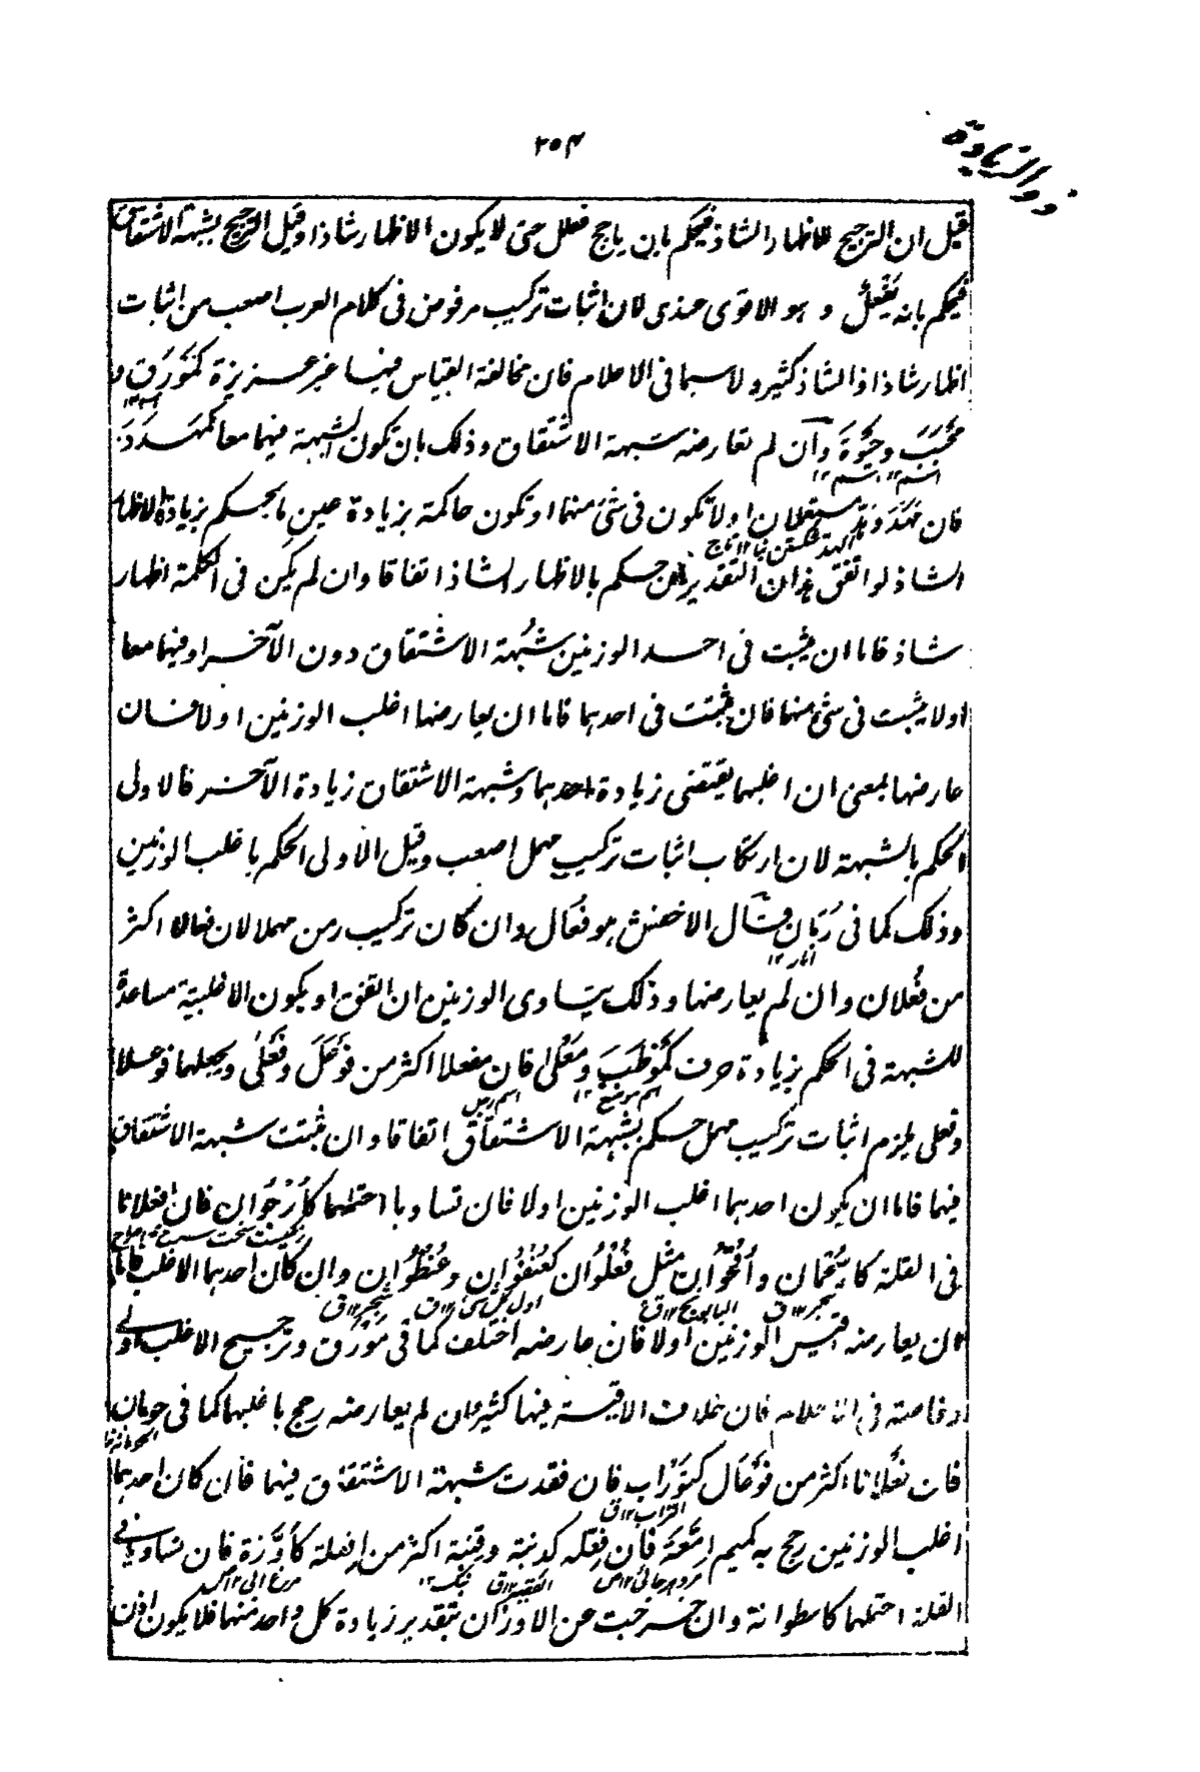 ٢٥٤
ذو الزيادة
قيل ان الترجيح للاظهار الشاذ فيحكم بان ياجج فعلل حتى لا يكون الاظهار شاذا وقيل الترجيح بشبهة الاشتقاق
فيحكم بانه يَفْعَلُ وهو الاقوى عندى لان اثبات تركيب مرفوض فى كلام العرب اصعب من اثبات
اظهار شاذ اذ الشاذ كثير ولا سيما فى الاعلام فان مخالفة القياس فيها غير عزيزة كَمَوْرَقٍ و
مَحْبَبَ وحَيْوَةَ وان لم تعارضه شبهة الاشتقاق وذلك بان تكون الشبهة فيهما معا كمَهْدَدَ
اسم ١٢ اسم ١٢
فان مَهَدَ وهَدَّ مستعملان او لا تكون فى شئ منهما او تكون حاكمة بزيادة عين ما يحكم بزيادة الاظهار
الشاذ لو اتفق هذان التقديران حكم بالاظهار الشاذ اتفاقا وان لم يكن فى الكلمة اظهار
شاذ فاما ان يثبت فى احد الوزنين شُبْهة الاشتقاق دون الآخر او فيهما معا
اولا يثبت فى شئ منهما فان ثبتت فى احدهما فاما ان يعارضها اغلب الوزنين اولا فان
عارضها بمعنى ان اغلبهما يقتضى زيادة احدهما وشبهة الاشتقاق زيادة الآخر فالاولى
الحكم بالشبهة لان ارتكاب اثبات تركيب مهمل اصعب وقيل الاولى الحكم باغلب الوزنين
وذلك كما فى رُمّانٍ قال الاخفش هو فُعّال وان كان تركيب رمن مهملا لان فعالا اكثر
انار ١٢
من فُعْلان وان لم يعارضها وذلك بتساوى الوزنين ان اتفق او بكون الاغلبية مساعدة
للشبهة فى الحكم بزيادة حرف كَمَوْظَبَ ومَعْلى فان مفعلا اكثر من فَوْعَلَ وفَعْلَى وبجعلهما فوعلا
اسم موضع ١٢ اسم رجل
وفعلى يلزم اثبات تركيب مهمل حكم بشبهة الاشتقاق اتفاقا وان ثبتت شبهة الاشتقاق
فيهما فاما ان يكون احدهما اغلب الوزنين اولا فان تساويا احتملهما كأُرْجُوَانٍ فان افعلانا
فى القلة كاسْحُمان واُقْحُوان مثل فُعْلُوَان كعُنْفُوَان وعُنْظُوَانٍ وان كان احدهما الاغلب فاما
شجر ١٢ق البابونج ١٢ق اول كل شئ ١٢ق شجر ١٢ق
ان يعارضه قيس الوزنين اولا فان عارضه اختلف كما فى مَوْرَق وترجيح الاغلب اولى
وخاصة فى الاعلام فان خلاف الاقيسة فيها كثير وان لم يعارضه رجح باغلبهما كما فى حومان
فان فَعْلانا اكثر من فَوْعَال كَتَوْرَابٍ فان فقدت شبهة الاشتقاق فيهما فان كان احدهما
التراب ١٢ق
اغلب الوزنين رجح به كميم اِمَّعَة فان فِعَّلة كدنّبة وقنّبة اكثر من اِفْعَلة كاوَزَّة فان تساويا فى
القلة احتملهما كاسطوانة وان خرجت عن الاوزان بتقدير زيادة كل واحد منهما فلا يكون اذن